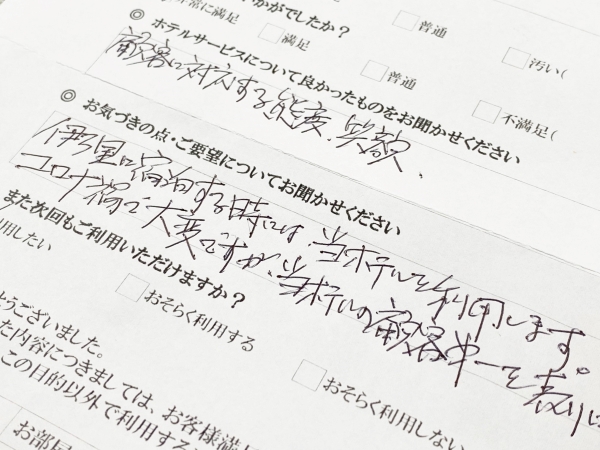 かがでしたか？
非常に満足 □満足 □普通 □汚い(
◎ ホテルサービスについて良かったものをお聞かせください
□普通 □不満足(
顧客に対応する態度、笑顔、
◎ お気づきの点・ご要望についてお聞かせください
伊万里に宿泊する時には、当ホテルを利用します。
コロナ禍で大変ですが、当ホテルの顧客第一を
また次回もご利用いただけますか？
利用したい □おそらく利用する □おそらく利用しない
ようございました。
た内容につきましては、お客様満足
この目的以外で利用する
お部屋